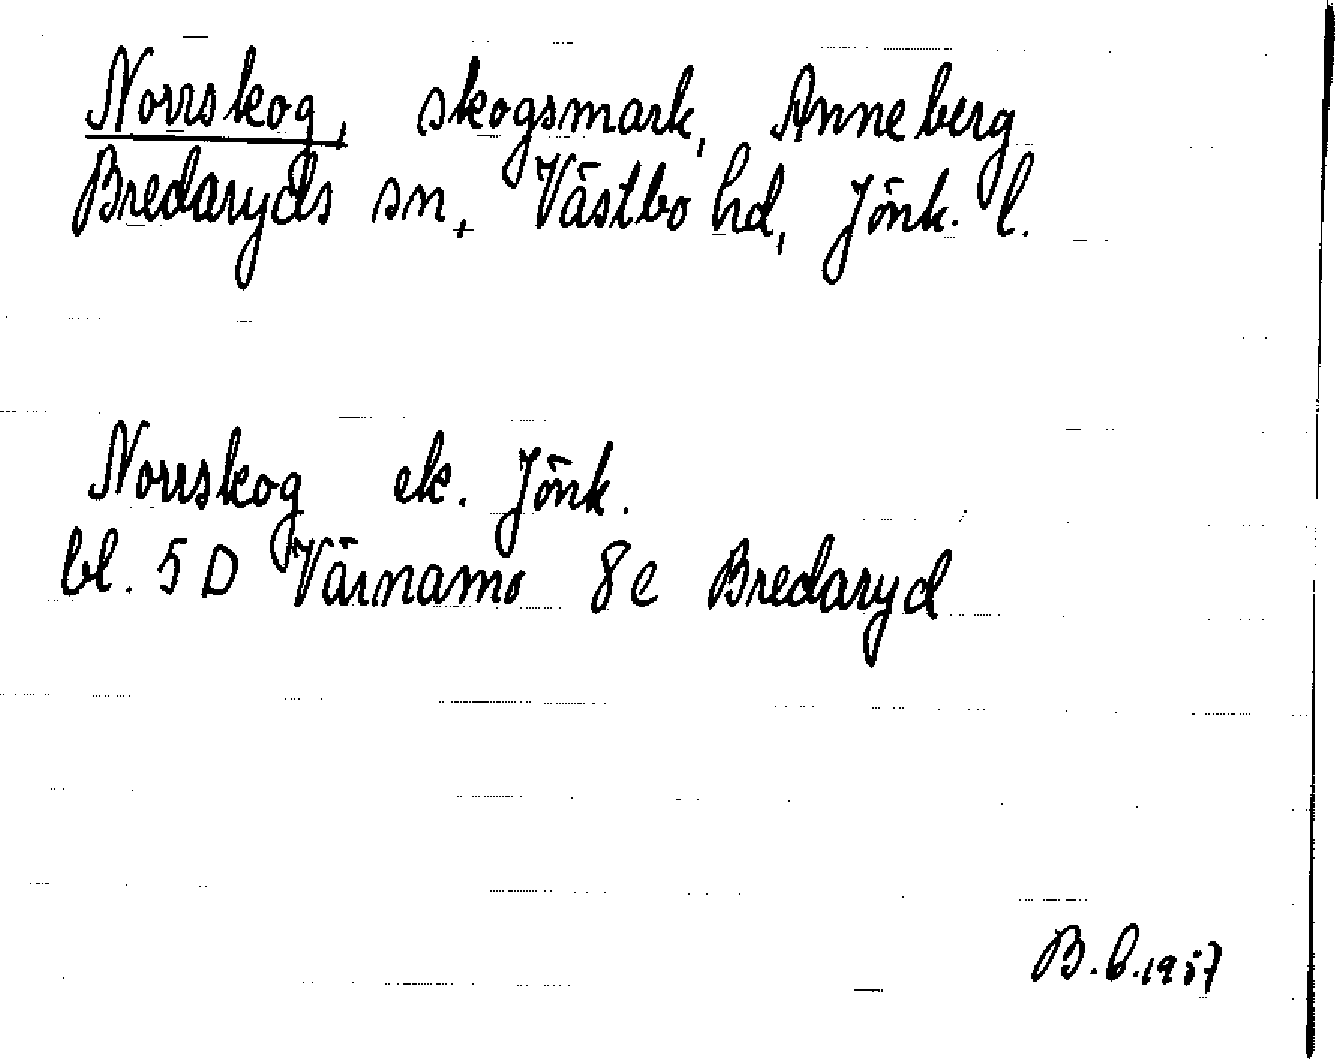 Norrskog, skogsmark, Anneberg
Bredaryds sn, Västbo hd, Jönk. l.
Norrskog ek. Jönk.
bl. 5 D Värnamo 8e Bredaryd
B.b.1957